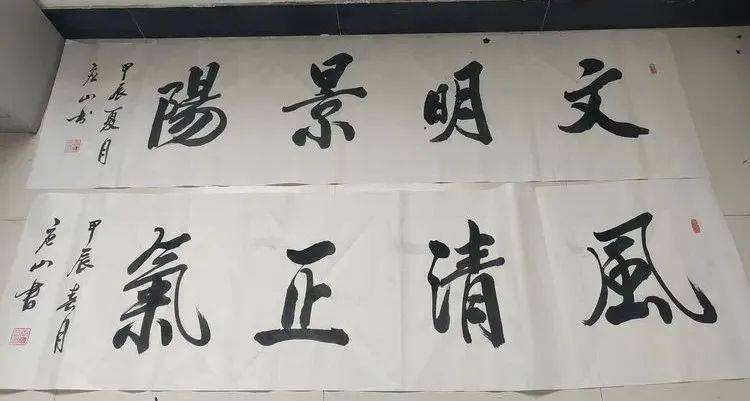 文明景陽
甲辰夏月
启山书
風清正氣
甲辰春月
启山書